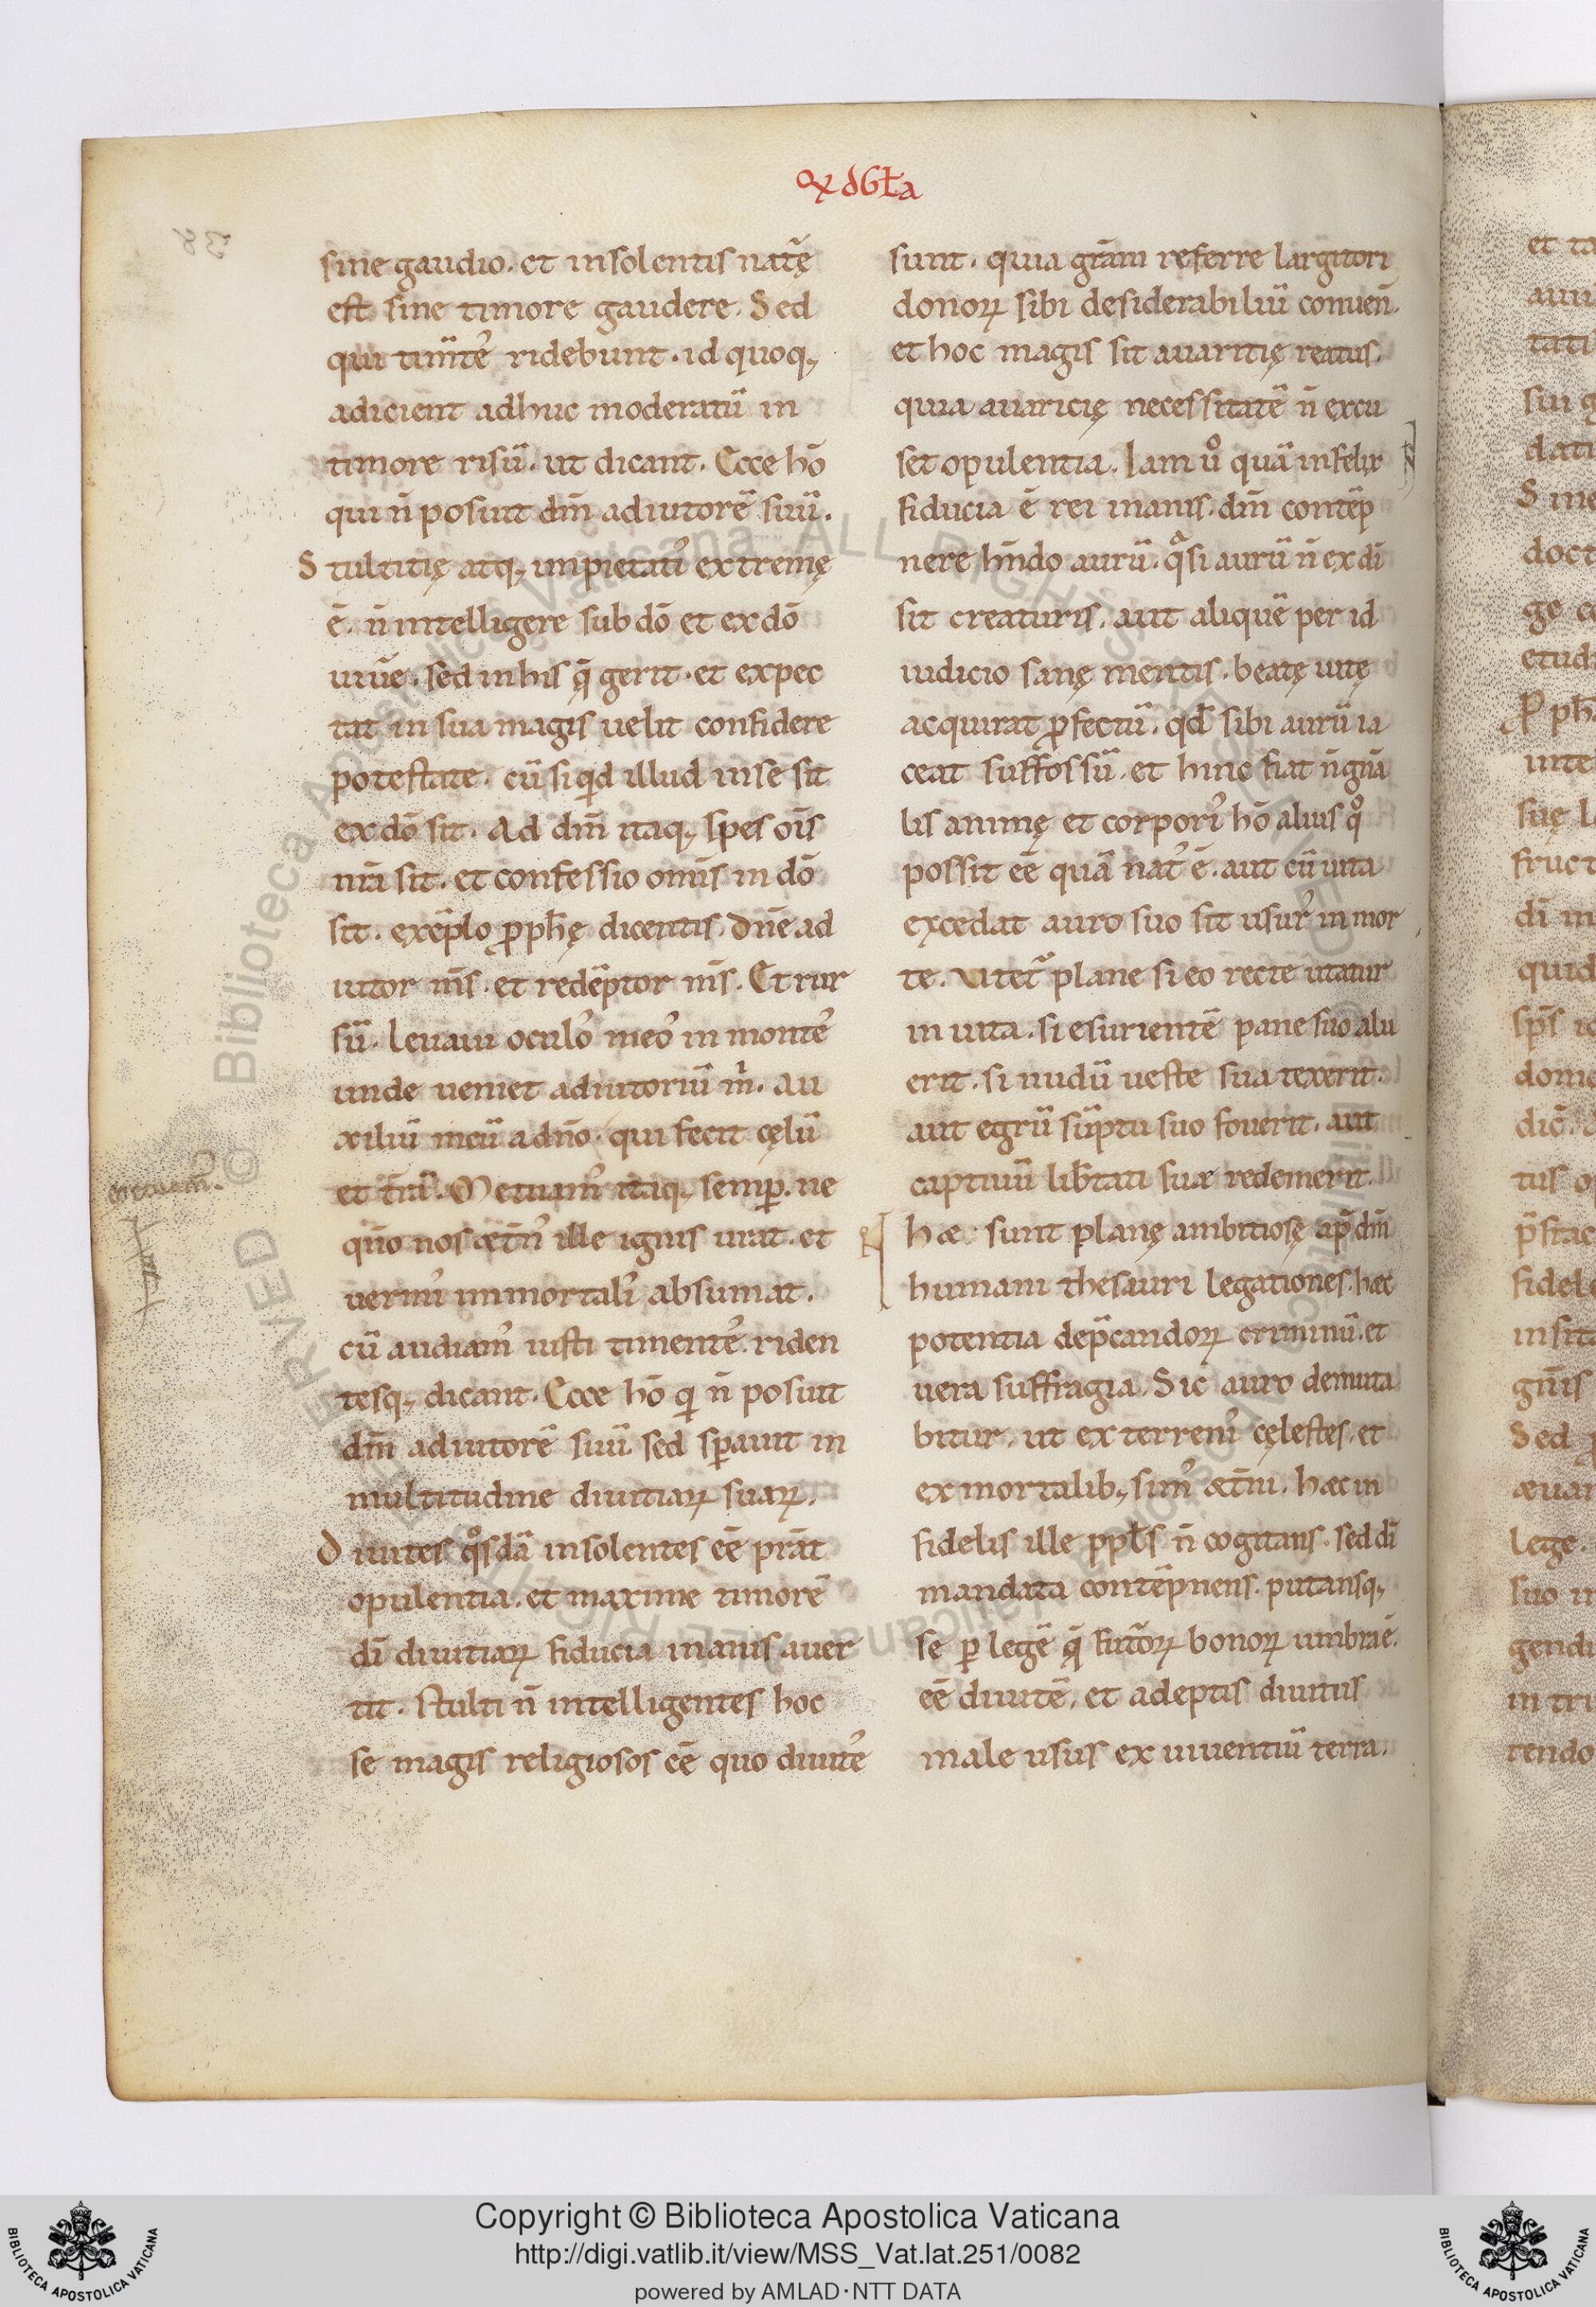 sine gaudio. et insolentis natu᷑ę
est sine timore gaudere. Sed
qui tim̄te᷒ ridebunt. id quoq;
adicient adhuc moderatū in
timore risū. ut dicant. Ecce hō
qui n̄ posuit dm̄ adiutorē suū.
Stultitię atq; impietati᷒ extremę
ē. n̄ intelligere sub dō et ex dō
uiūe. sed in his q̄ gerit. et expec
tat in sua magis uelit confidere
potestate. cū siqid illud in se sit
ex dō sit. Ad dm̄ itaq; spes oīs
nr̄a sit. et confessio omīs in dō
sit. exēplo ꝓph̄ę dicentis. Dn̄e ad
iutor m̄s. et redēptor m̄s. Et rur
sū. Leuaui oculo᷒ meo᷒ in monte᷒
unde ueniet adiutoriū m̄. Au
xiliū meū a dn̄o. qui fecit cęlū
et t̄rā. Metuam᷒ itaq; semꝑ. ne
qn̄o nos æt̄n᷒ ille ignis urat. et
uermi᷒ immortali᷒ absumat.
cū audiam᷒ iusti timente᷒. riden
tesq; dicant. Ecce hō qi n̄ posuit
dm̄ adiutorē suū sed sꝑauit in
multitudine diuitiaꝝ suaꝝ.
Diuites qosdā insolentes eē prāt
opulentia. et maxime timorē
dī diuitiaꝝ fiducia inanis auer
tit. stulti n̄ intelligentes hoc
se magis religiosos eē quo diuite᷒
sunt. quia grām referre largitori
donoꝝ sibi desiderabiliū conuen̄.
et hoc magis sit auaritię reatus.
quia auaricię necessitatē n̄ excu
set opulentia. Iam uo quā infelix
fiducia ē rei inanis. dm̄ contēp
nere hn̄do aurū. qasi aurū n̄ ex dī
sit creaturis. aut aliquē per id
iudicio sanę mentis. beatę uitę
acquirat ꝓfectū. qd̄ sibi aurū ia
ceat suffossū. et hinc fiat
lis animę et corpori᷒ hō alius qo
possit eē quā nat᷒ ē. aut cū uita
excedat auro suo sit usur᷒ in mor
te. Vtet᷑ plane si eo recte utatur
in uita. si esurientē pane suo alu
erit. si nudū ueste sua texerit.
aut egrū sūptu suo fouerit. aut
captiuū lib̄tati suæ redemerit.
hæ sunt planę ambitiosę ap̄ dm̄
humani thesauri legationes. hæc
potentia dep̄candoꝝ criminū. et
uera suffragia. Sic auro demuta
bitur. ut ex terreni᷒ cęlestes. et
ex mortalib; sim᷒ æt̄ni. hæc in
fidelis ille ppl̄s n̄ cogitans. sed dī
mandata contēpnens. putansq;
se ꝑ legē q̄ futōꝝ bonoꝝ umbra ē.
eē diuitē. et adeptis diuitiis
male usus ex uiuentiū terra.
Copyright © Biblioteca Apostolica Vaticana
http://digi.vatlib.it/view/MSS_Vat.lat.251/0082
powered by AMLAD·NTT DATA